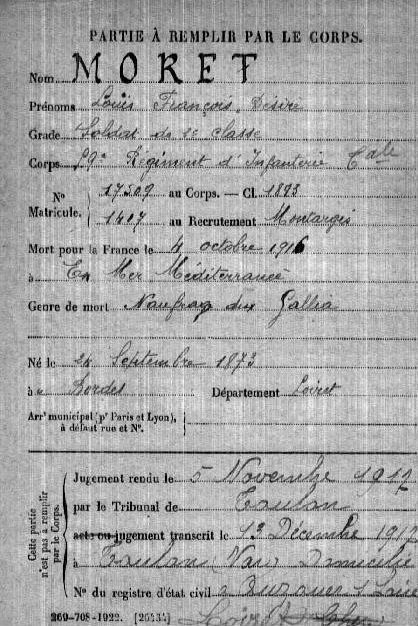 PARTIE À REMPLIR PAR LE CORPS.
Nom MORET
Prénoms Louis François Désiré
Grade Soldat de 2e classe
Corps Régiment d'Infanterie Cale
No 17509 au Corps. — Cl. 1893
Matricule. 1407 au Recrutement Montargis
Mort pour la France le 4 octobre 1916
à En Mer Méditerranée
Genre de mort Naufrage du Gallia
Né le Septembre 1873
à Bordes Département Loiret
Arrt municipal (pr Paris et Lyon),
à défaut rue et No.
Cette partie n'est pas à remplir par le Corps.
Jugement rendu le 5 Novembre 1917
par le Tribunal de Toulon
acte ou jugement transcrit le 13 Décembre 1917
à Toulon (Var) Domicilié
No du registre d'état civil à
269-708-1922. [26434]